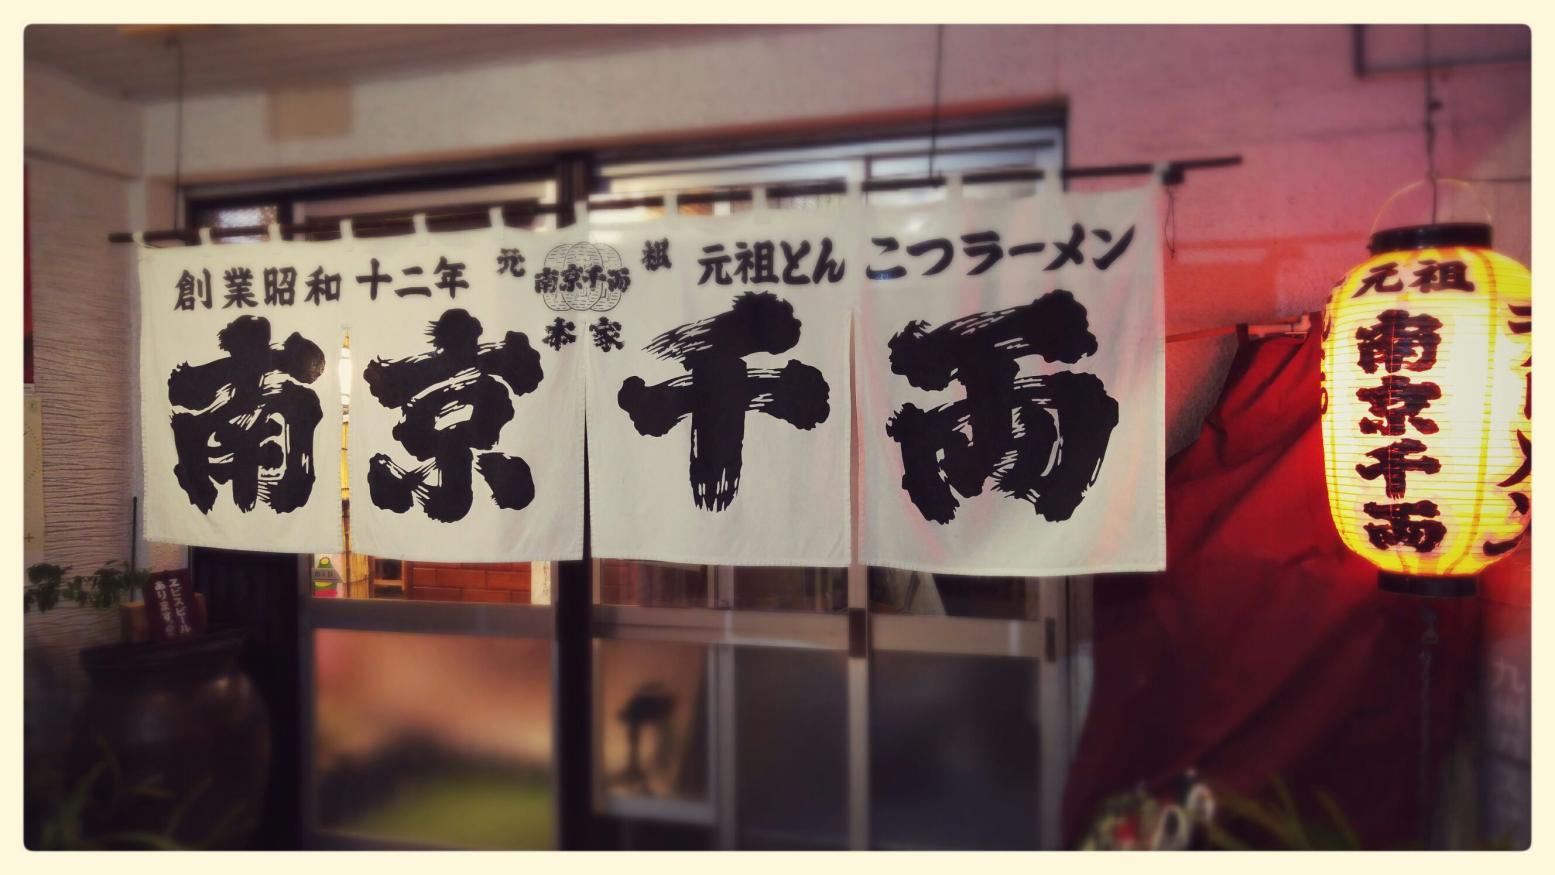 創業昭和十二年
元祖
南京千両
本家
元祖とんこつラーメン
南京千両
元祖
南京千両
ヱビスビール
あります。